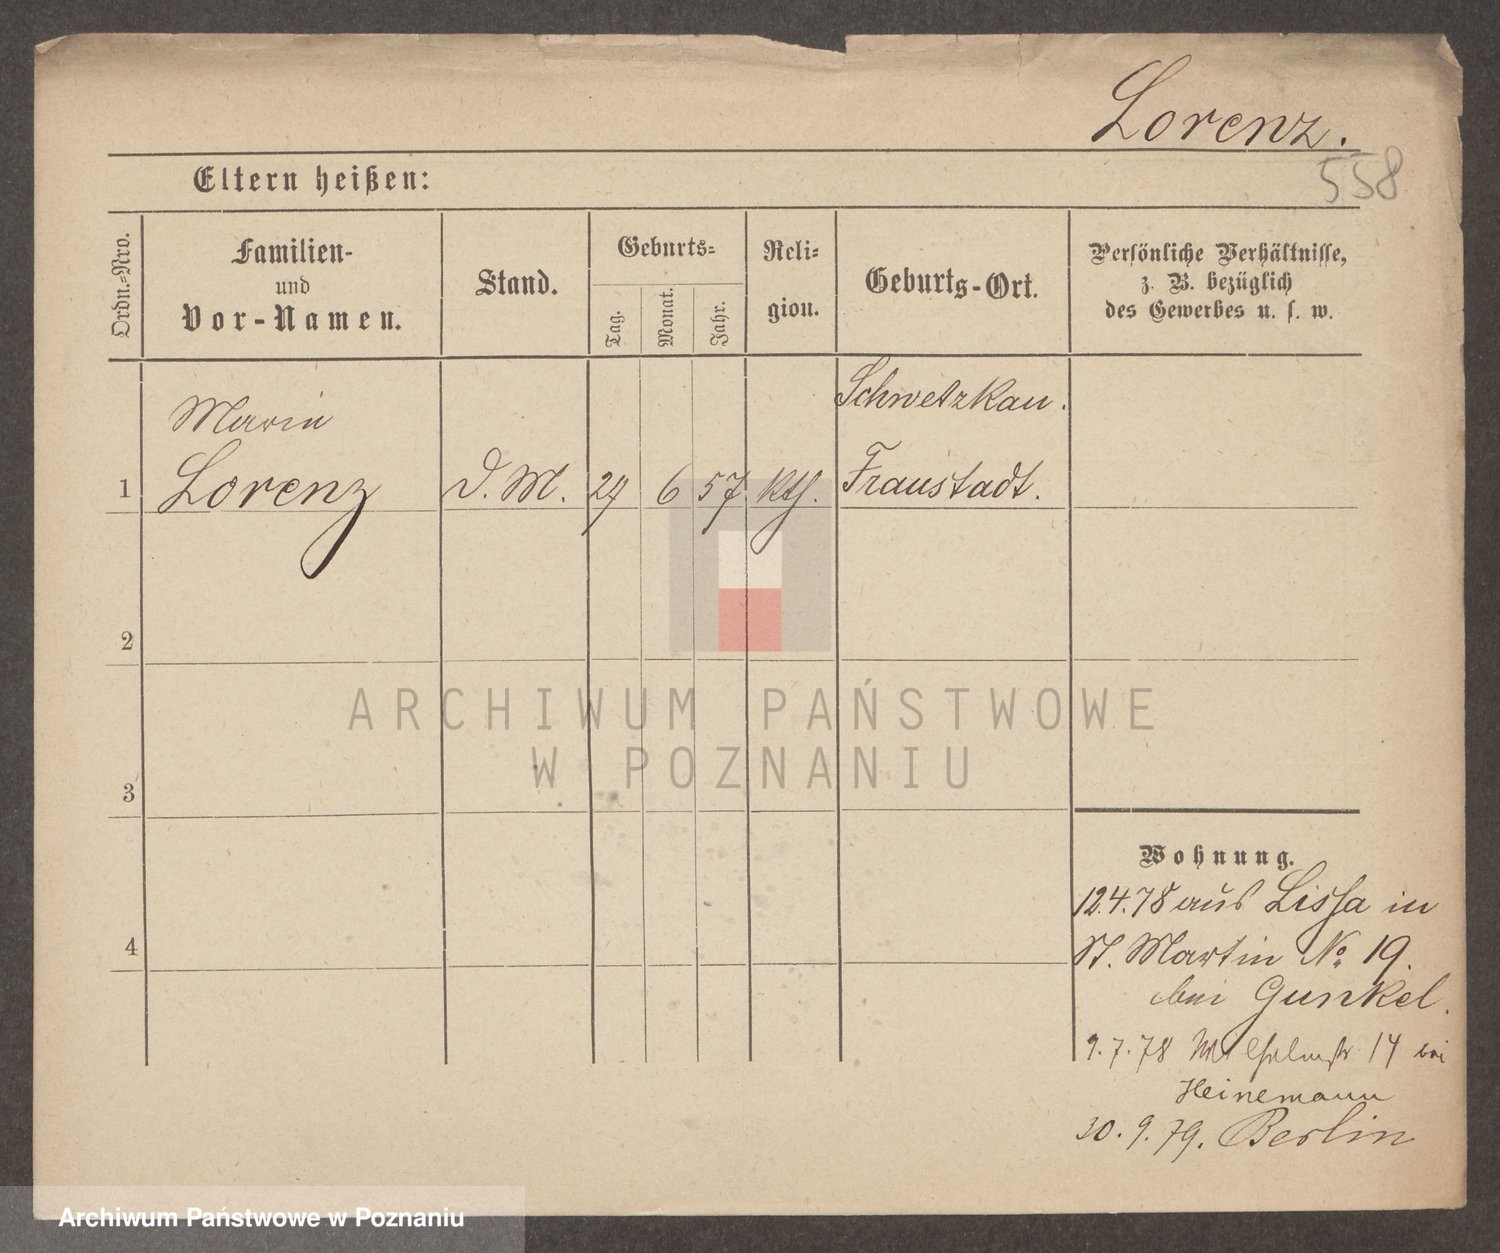 Lorenz.
558
Eltern heißen:
Ordn.=Nro.
Familien-
und
Vor-Namen.
Stand.
Geburts=
Tag.
Monat.
Jahr.
Reli=
gion.
Geburts-Ort.
Persönliche Verhältnisse,
z. B. bezüglich
des Gewerbes u. s. w.
Marie
Schwetzkau.
1 Lorenz D. M. 6 57 kth. Fraustadt.
2
3
4
Wohnung.
12.4.78 aus Lissa in
St. Martin No 19.
bei Gunkel.
9.7.78 Wilhelmstr 14 bei
Heinemann
30.9.79. Berlin
ARCHIWUM PAŃSTWOWE
W POZNANIU
Archiwum Państwowe w Poznaniu